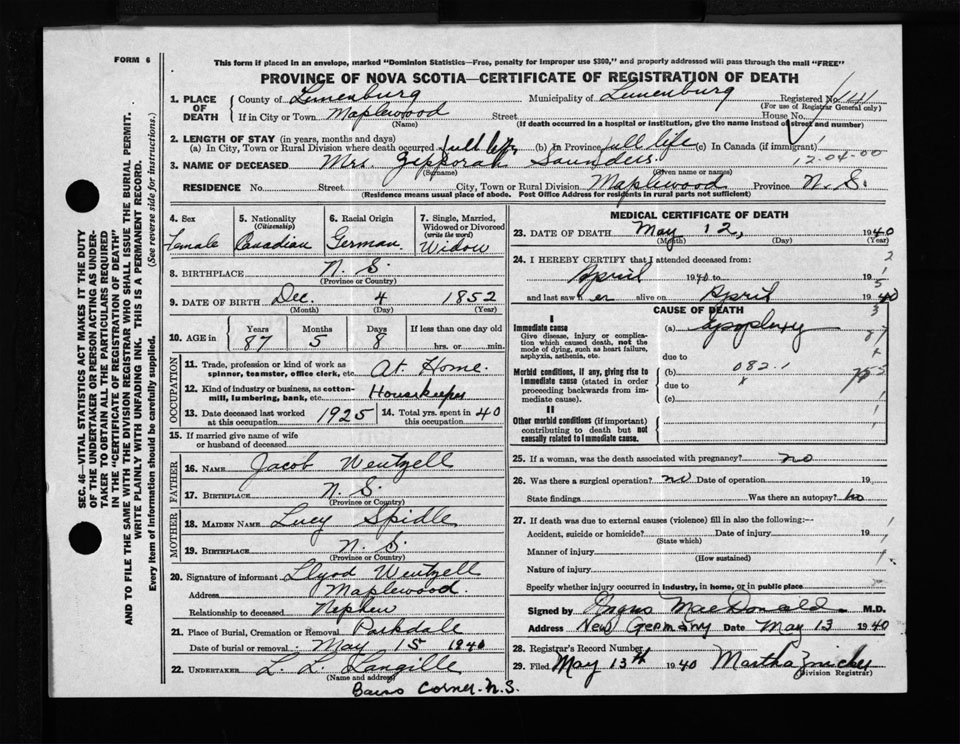 FORM 6
This form if placed in an envelope, marked "Dominion Statistics—Free, penalty for improper use $300," and properly addressed will pass through the mail "FREE"
PROVINCE OF NOVA SCOTIA—CERTIFICATE OF REGISTRATION OF DEATH
1. PLACE OF DEATH County of Lunenburg Municipality of Lunenburg Registered No.
(For use of Registrar General only)
If in City or Town Maplewood Street House No.
(Name) (If death occurred in a hospital or institution, give the name instead of street and number)
2. LENGTH OF STAY (in years, months and days)
(a) In City, Town or Rural Division where death occurred full life (b) In Province full life (c) In Canada (if immigrant)
12-04-00
3. NAME OF DECEASED Mrs. Zipporah Saunders.
(Surname) (Given name or names)
RESIDENCE No. Street City, Town or Rural Division Maplewood Province N.S.
(Residence means usual place of abode. Post Office Address for residents in rural parts not sufficient)
4. Sex Female
5. Nationality (Citizenship) Canadian
6. Racial Origin German
7. Single, Married, Widowed or Divorced (write the word) Widow
8. BIRTHPLACE N. S.
(Province or Country)
9. DATE OF BIRTH Dec. 4 1852
(Month) (Day) (Year)
10. AGE in Years 87 Months 5 Days 8 If less than one day old hrs. or min.
OCCUPATION
11. Trade, profession or kind of work as spinner, teamster, office clerk, etc. At Home.
12. Kind of industry or business, as cotton-mill, lumbering, bank, etc. Housekeeper
13. Date deceased last worked at this occupation 1925
14. Total yrs. spent in this occupation 40
15. If married give name of wife or husband of deceased
FATHER
16. NAME Jacob Wentzell
17. BIRTHPLACE N. S.
(Province or Country)
MOTHER
18. MAIDEN NAME Lucy Spidle
19. BIRTHPLACE N. S.
(Province or Country)
20. Signature of informant Llyod Wentzell
Address Maplewood.
Relationship to deceased Nephew
21. Place of Burial, Cremation or Removal Parkdale
Date of burial or removal May 15 1940
22. UNDERTAKER L. L. Langille
(Name and address)
Barss Corner. N.S.
MEDICAL CERTIFICATE OF DEATH
23. DATE OF DEATH May 12, 1940
(Month) (Day) (Year)
24. I HEREBY CERTIFY that I attended deceased from:
April 1940 to
and last saw her alive on April 1940
CAUSE OF DEATH
I
Immediate cause
Give disease, injury or complication which caused death, not the mode of dying, such as heart failure, asphyxia, asthenia, etc.
(a) apoplexy
due to
Morbid conditions, if any, giving rise to immediate cause (stated in order proceeding backwards from immediate cause).
(b) 082.1
due to
(c)
II
Other morbid conditions (if important) contributing to death but not causally related to immediate cause.
25. If a woman, was the death associated with pregnancy? no
26. Was there a surgical operation? no Date of operation 19
State findings Was there an autopsy? no
27. If death was due to external causes (violence) fill in also the following:—
Accident, suicide or homicide? Date of injury 19
(State which)
Manner of injury
(How sustained)
Nature of injury
Specify whether injury occurred in industry, in home, or in public place
Signed by Angus MacDonald M.D.
Address New Germany Date May 13 1940
28. Registrar's Record Number
29. Filed May 13th 1940 Martha Zwicker
(Division Registrar)
SEC. 46—VITAL STATISTICS ACT MAKES IT THE DUTY
OF THE UNDERTAKER OR PERSON ACTING AS UNDER-
TAKER TO OBTAIN ALL THE PARTICULARS REQUIRED
IN THE "CERTIFICATE OF REGISTRATION OF DEATH"
AND TO FILE THE SAME WITH THE DIVISION REGISTRAR WHO SHALL ISSUE THE BURIAL PERMIT.
WRITE PLAINLY WITH UNFADING INK. THIS IS A PERMANENT RECORD.
Every item of information should be carefully supplied. (See reverse side for instructions.)